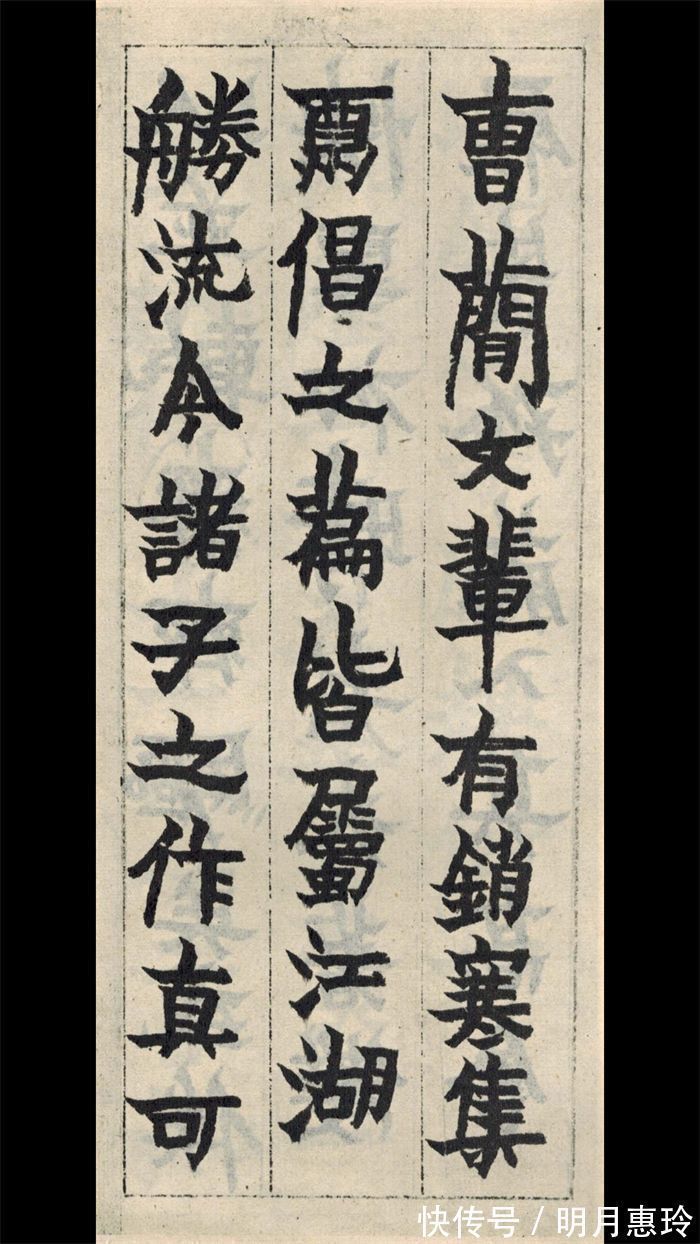 曺蕳女輩有銷寒集
倡之萹皆屬江湖
勝流今諸子之作真可
快传号/明月惠玲